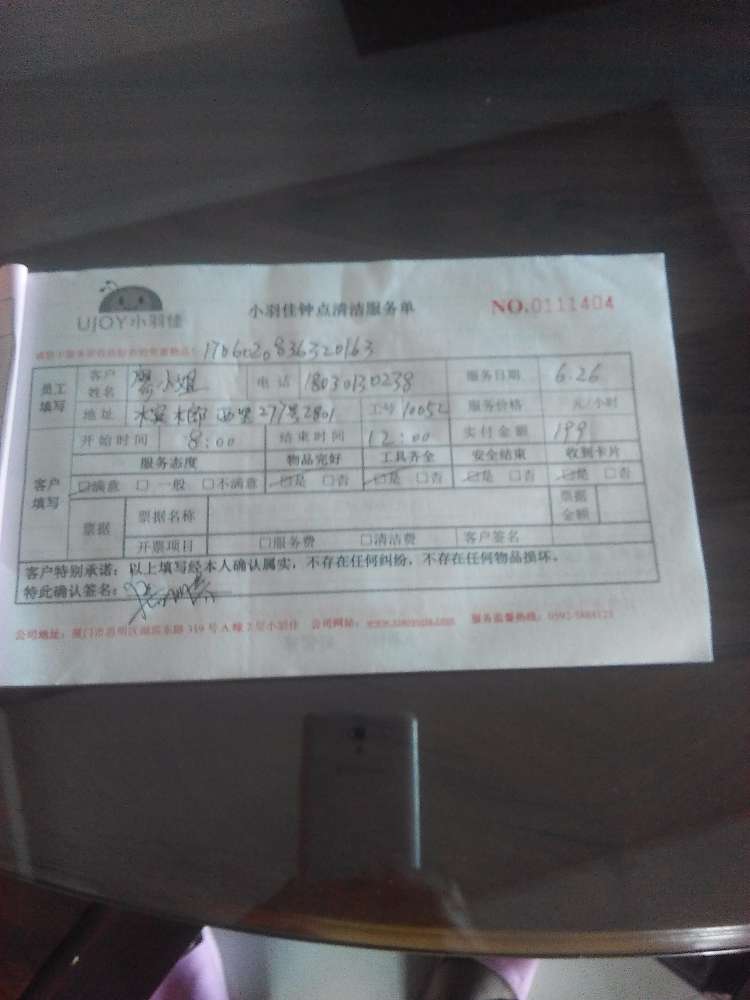 UJOY小羽佳
小羽佳钟点清洁服务单
NO.0111404
1706020836320163
员工填写 客户姓名 廖小姐 电话 18030130238 服务日期 6.26
地址 277号2801 工号 10052 服务价格 元/小时
开始时间 8:00 结束时间 12:00 实付金额 199
客户填写 服务态度 物品完好 工具齐全 安全结束 收到卡片
☑满意 □一般 □不满意 ☑是 □否 ☑是 □否 ☑是 □否 ☑是 □否
票据 票据名称 票据金额
开票项目 □服务费 □清洁费 客户签名
客户特别承诺:以上填写经本人确认属实,不存在任何纠纷,不存在任何物品损坏。
特此确认签名:
公司地址:厦门市思明区湖滨东路319号A幢2层小羽佳 公司网站: 服务监督热线: